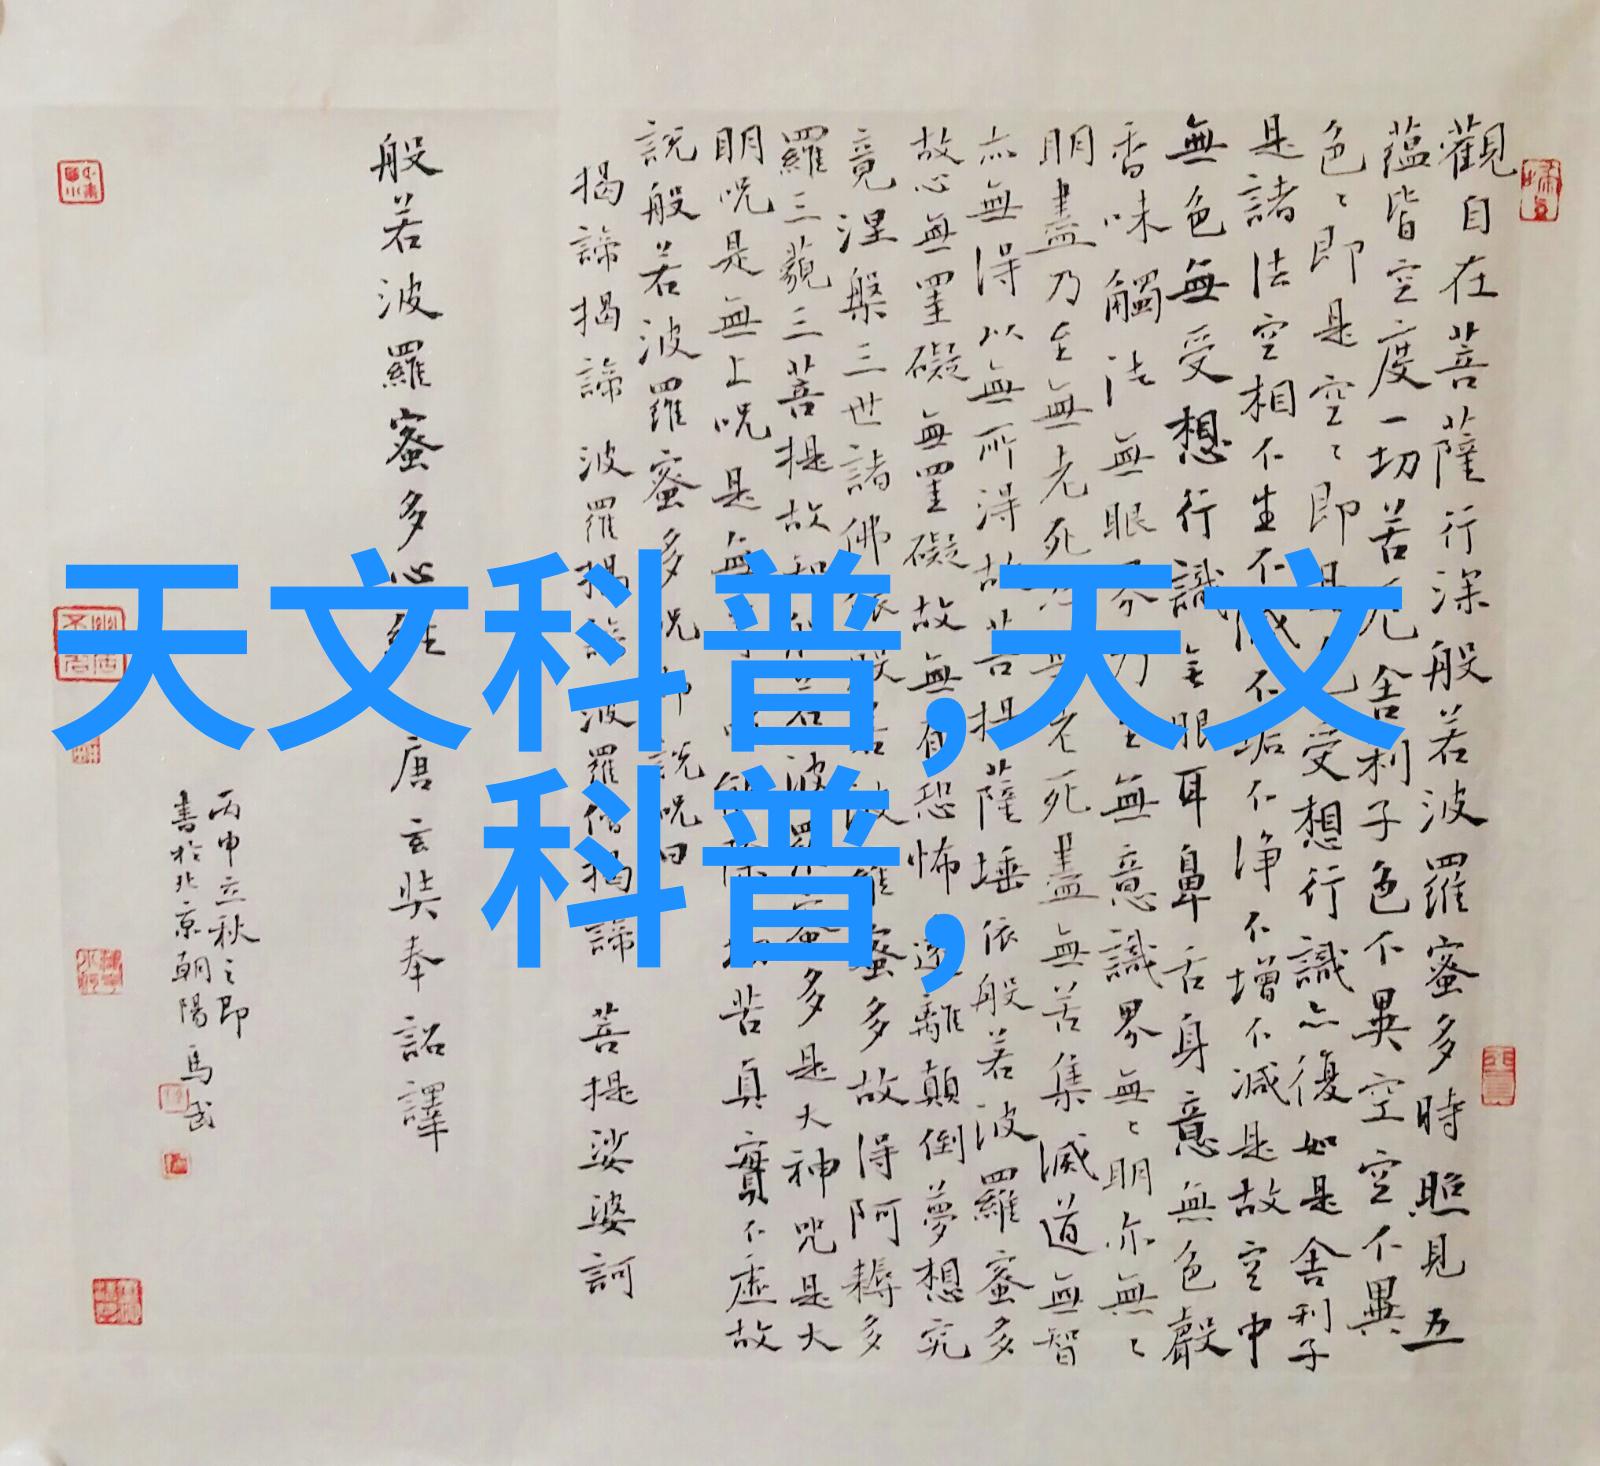 觀自在菩薩行深般若波羅蜜多時照見五
蘊皆空度一切苦厄舍利子色不異空空不異
色〻即是空〻即是色受想行識亦復如是舍利子
是諸法空相不生不滅不垢不淨不增不減是故空中
無色無受想行識無眼耳鼻舌身意無色聲
香味觸法無眼界乃至無意識界無〻明亦無〻
明盡乃至無老死亦無老死盡無苦集滅道無智
亦無得以無所得故菩提薩埵依般若波羅蜜多
故心無罣礙無罣礙故無有恐怖遠離顛倒夢想究
竟涅槃三世諸佛依般若波羅蜜多故得阿耨多
羅三藐三菩提故知般若波羅蜜多是大神咒是大
明咒是無上咒是無咒能除切苦真實不虛故
說般若波羅蜜多咒即說咒曰
揭諦揭諦 波羅揭諦 波羅僧揭諦 菩提娑婆訶
般若波羅蜜多心經 唐玄奘奉詔譯
丙申立秋之即
書於北京朝陽馬武
天文科普,天文
科普,